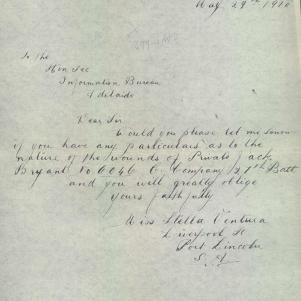 May 29th 1918
To the
Hon Sec
Information Bureau
Adelaide
Dear Sir
Would you please let me know
if you have any particulars as to the
nature of the wounds of Private Jack
Bryant No 6046 C Company 27th Batt
and you will greatly oblige
yours faithfully
Miss Stella Ventura
Liverpool St
Port Lincoln
S.A